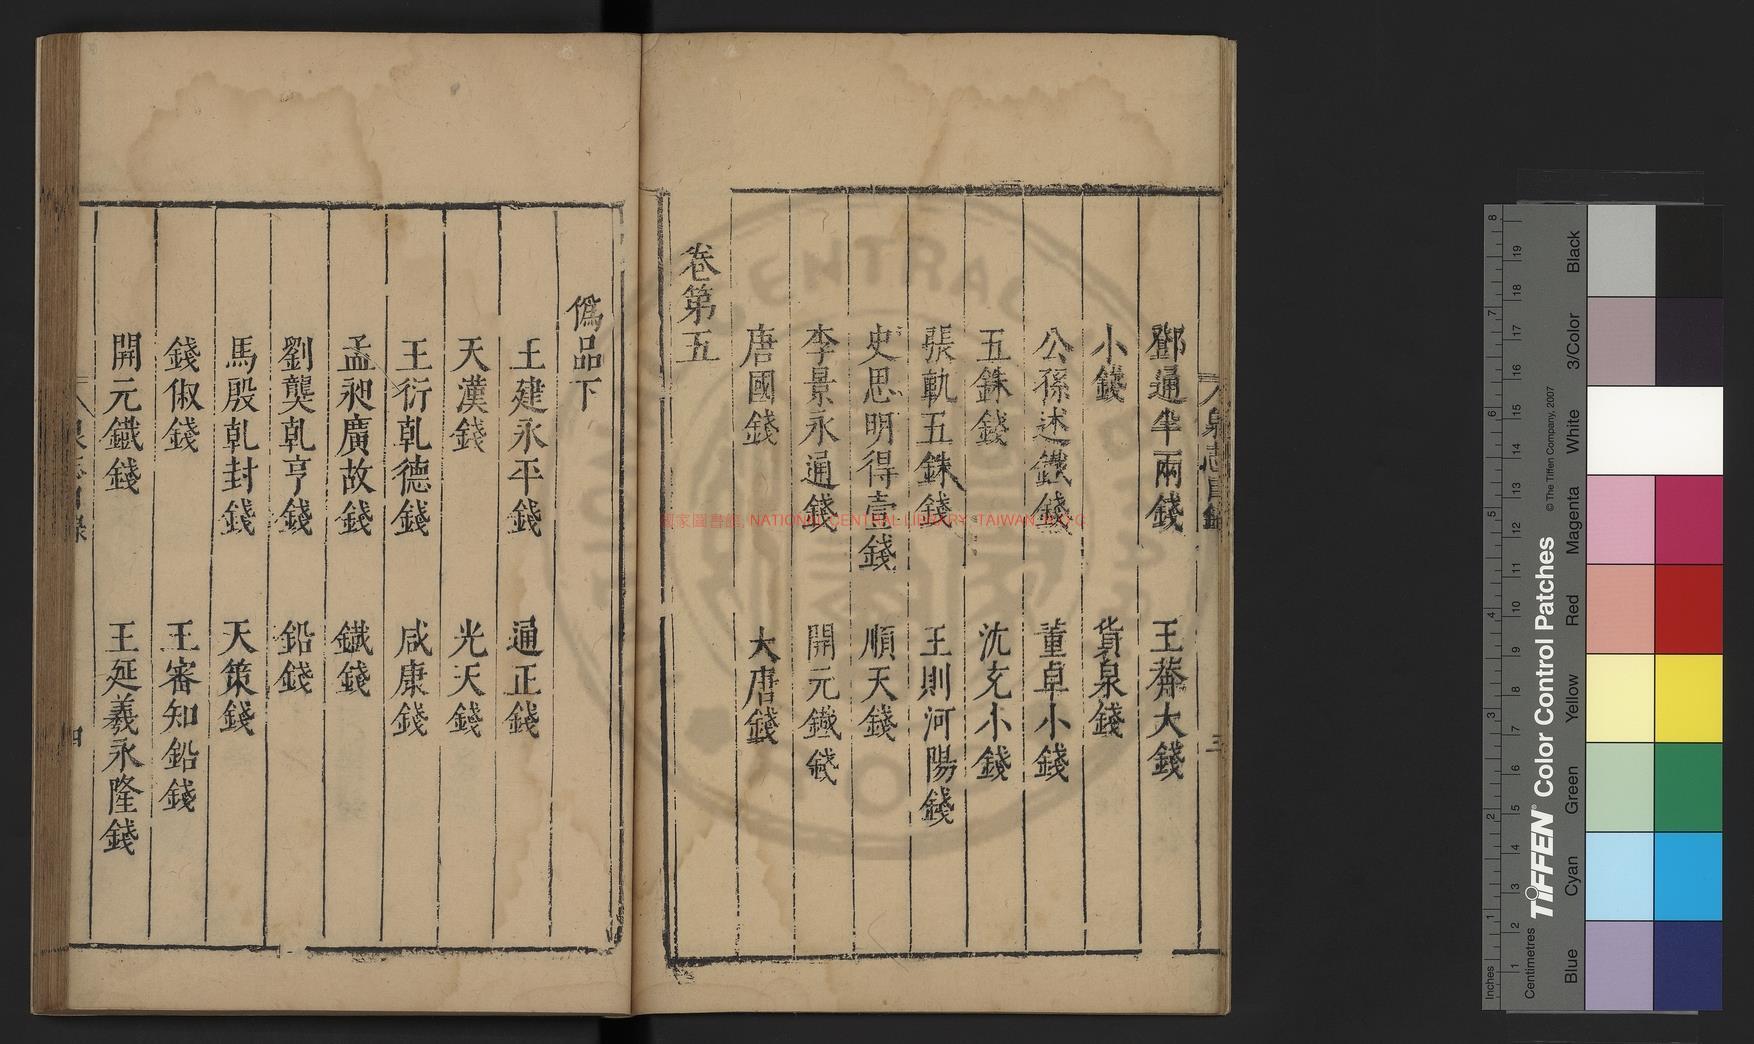 鄧通半兩錢 王莽大錢
小錢 貨泉錢
公孫述鐵錢 董卓小錢
五銖錢 沈充小錢
張軌五銖錢 王則河陽錢
史思明得壹錢 順天錢
李景永通錢 開元鐵錢
唐國錢 大唐錢
卷第五
三
僞品下
王建永平錢 通正錢
天漢錢 光天錢
王衍乹德錢 咸康錢
孟昶廣政錢 鐵錢
劉龑乹亨錢 鉛錢
馬殷乹封錢 天策錢
錢俶錢 王審知鉛錢
開元鐵錢 王延羲永隆錢
四
國家圖書館, NATIONAL CENTRAL LIBRARY, TAIWAN, R.O.C.
Inches
Centimetres
TIFFEN® Color Control Patches
© The Tiffen Company, 2007
Blue
Cyan
Green
Yellow
Red
Magenta
White
3/Color
Black